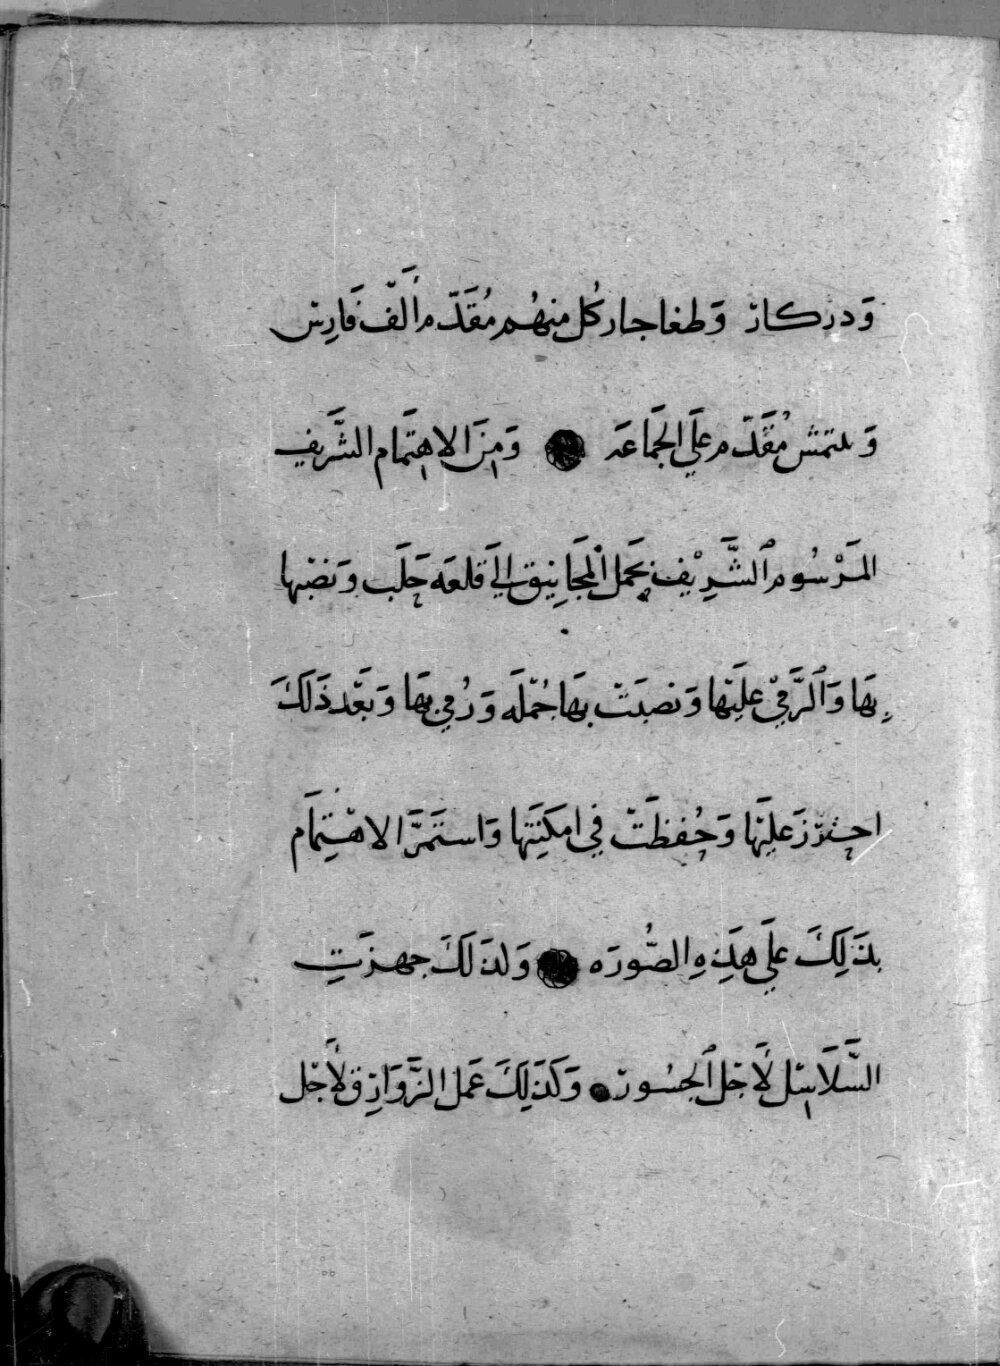 وَدركار وَطغاجار كُل منهُم مُقَدّم أَلف فَارِس
وَيلتمش مُقَدّم علَي الجَمَاعَه وَمِنَ الاهتِمَام الشَّريف
المَرْسُوم ٱلشَّرِيْف بحَمل المجَانِيق الَي قلعَه حَلَب وَنصْبها
بِهَا وَٱلرَّمي علَيْهَا وَنصبَتْ بِهَا جُمْلَه وَرُمي بهَا وَبَعْد ذَلكَ
احترزَ علَيْهَا وَحُفظَتْ في امكِنَتها وَاستَمَرَّ الاهْتِمَام
بذَلِكَ علَي هَذِهِ الصُّورَه وَلذَلكَ جهزَتِ
السَّلَاسِل لأَجْل ٱلجسُور وَكَذَلِكَ عَمل الزَّوَارِق لأَجْل